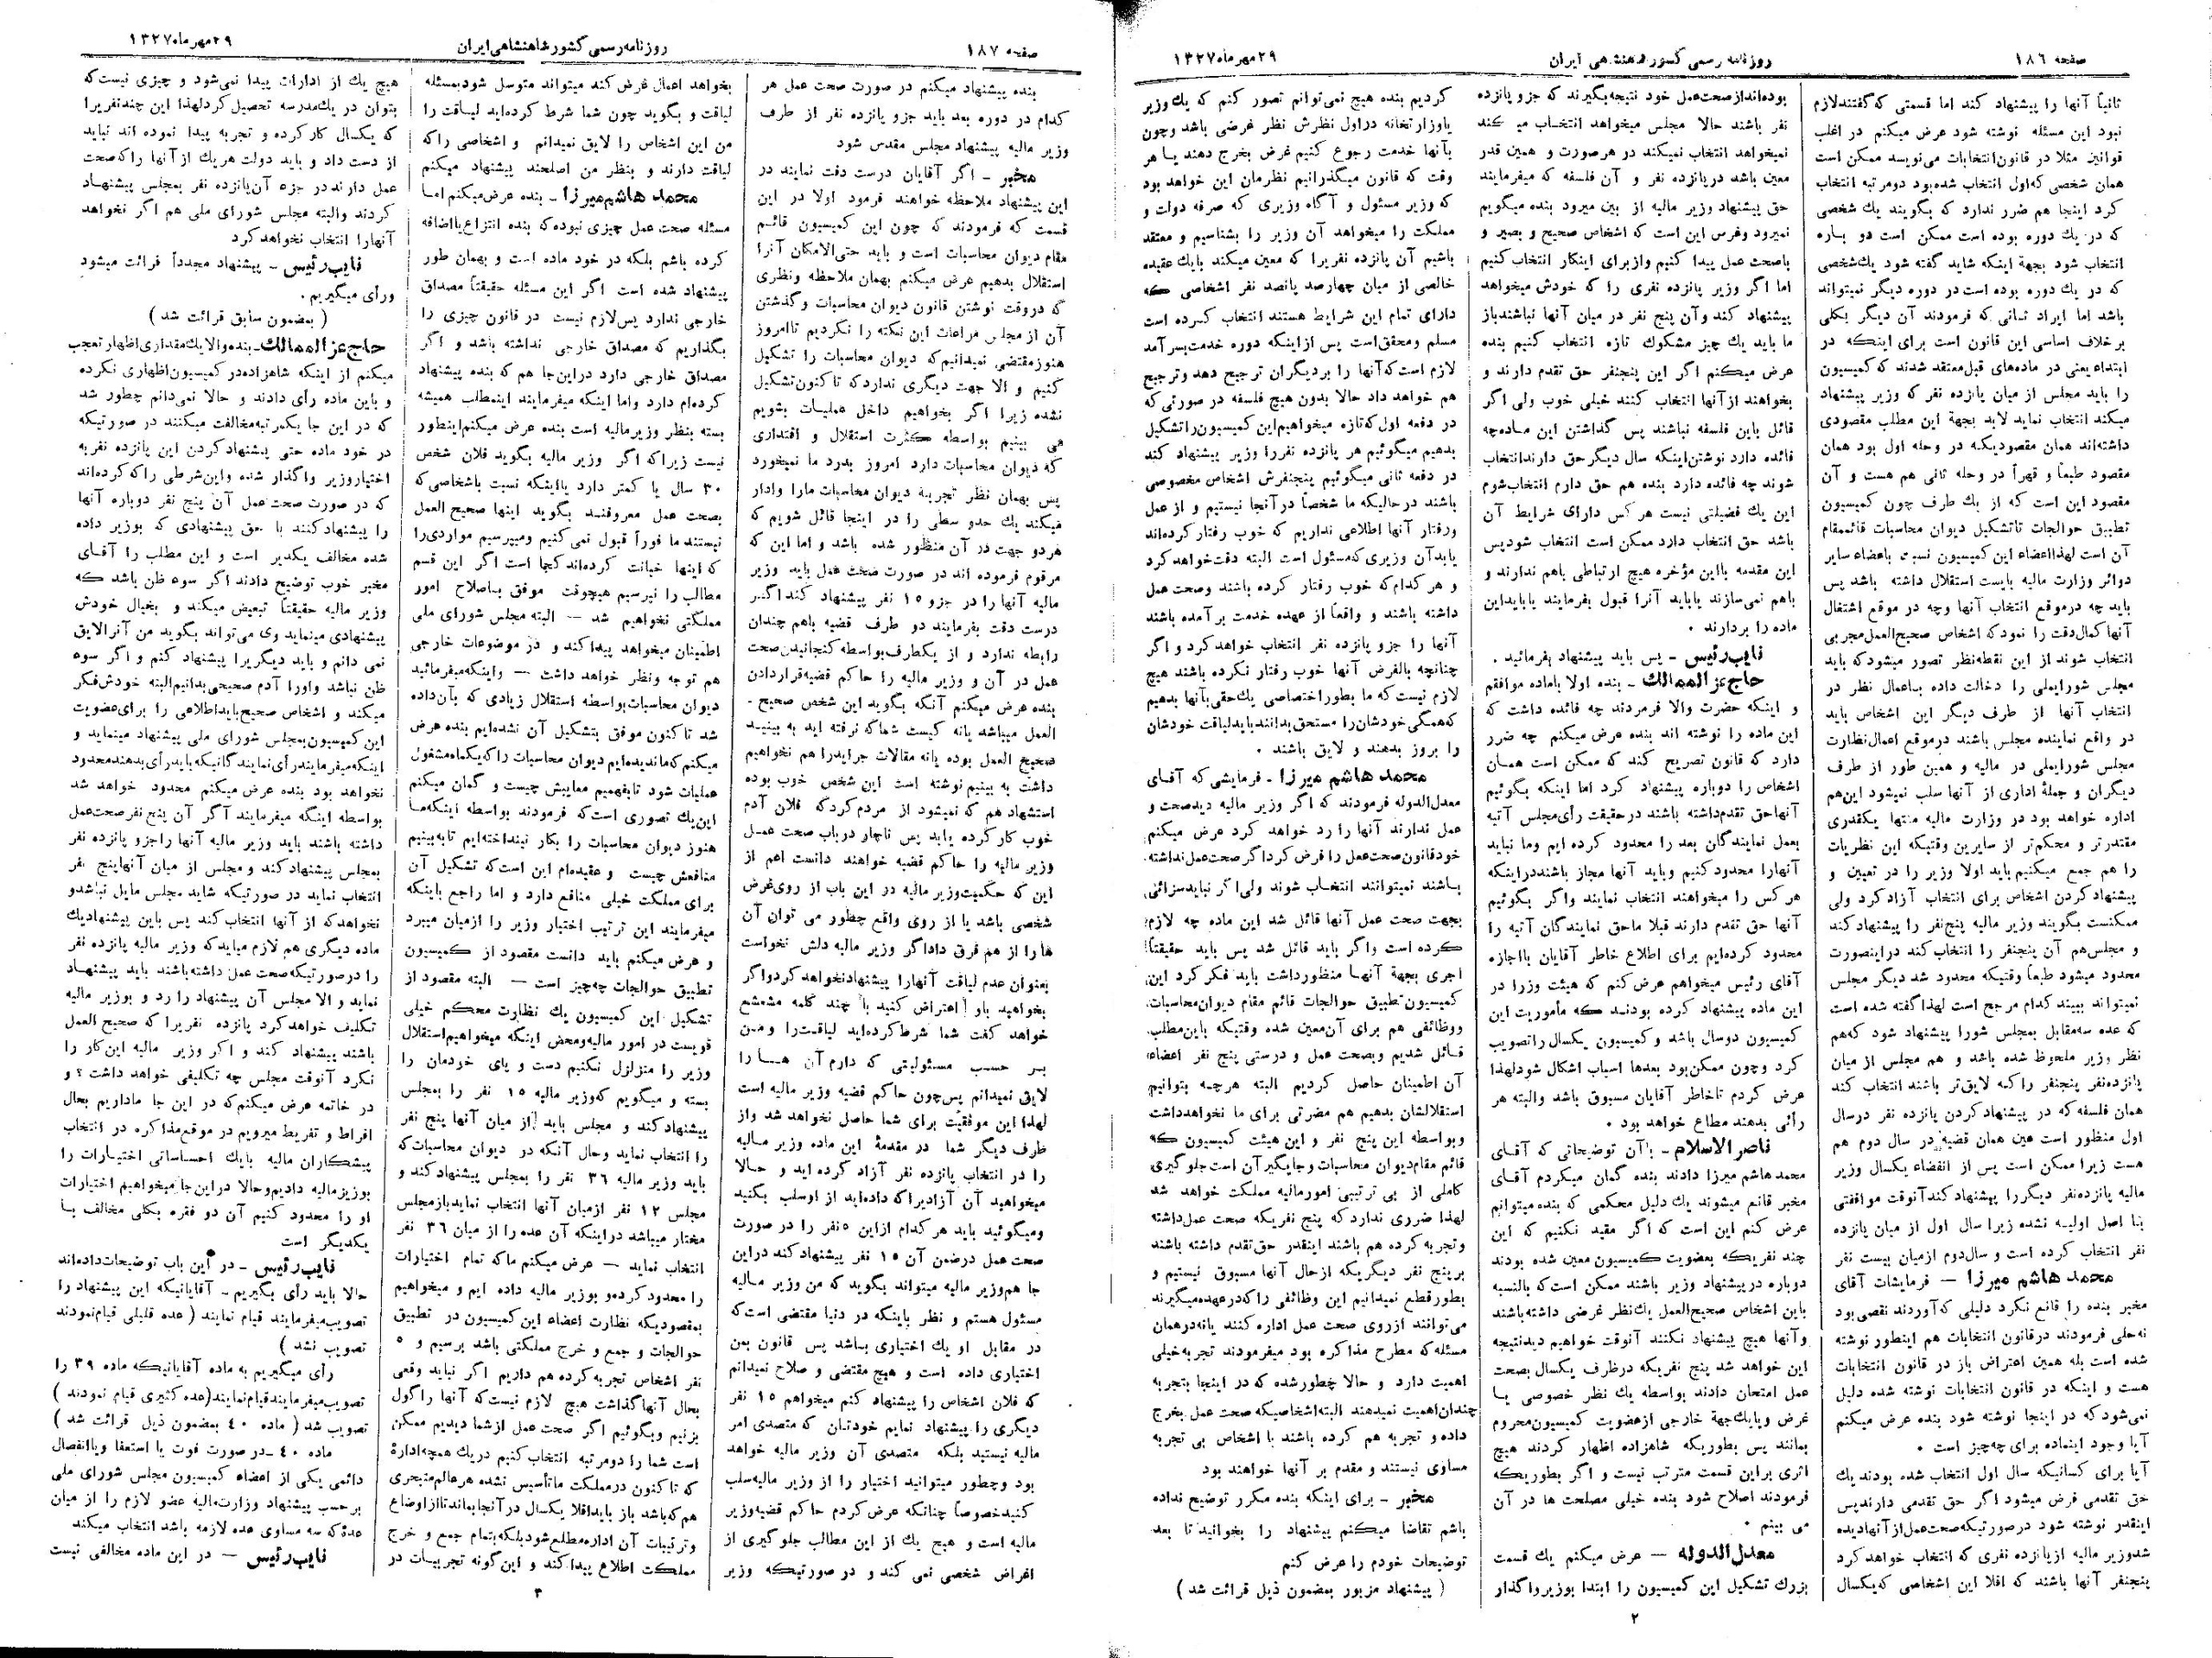 صفحه ۱۸۶
روزنامه رسمی کشور شاهنشاهی ایران
۲۹ مهرماه ۱۳۲۷
ثانیاً آنها را پیشنهاد کند اما قسمتی که گفتند لازم
نبود این مسئله نوشته شود عرض میکنم در اغلب
قوانین مثلا در قانون انتخابات می‌نویسد ممکن است
همان شخصی که اول انتخاب شده بود دو مرتبه انتخاب
کرد اینجا هم ضرر ندارد که بگویند یك شخصی
که در یك دوره بوده است ممکن است دو باره
انتخاب شود بجهة اینکه شاید گفته شود یك شخصی
که در یك دوره بوده است در دوره دیگر نمیتواند
باشد اما ایراد ثانی که فرمودند آن دیگر بکلی
بر خلاف اساسی این قانون است برای اینکه در
ابتداء یعنی در ماده‌های قبل معتقد شدند که کمیسیون
را باید مجلس از میان پانزده نفر که وزیر پیشنهاد
میکند انتخاب نماید لابد بجهة این مطلب مقصودی
داشته‌اند همان مقصودیکه در وحله اول بود همان
مقصود طبعاً و قهراً در وحله ثانی هم هست و آن
مقصود این است که از یك طرف چون کمیسیون
تطبیق حوالجات تا تشکیل دیوان محاسبات قائممقام
آن است لهذا اعضاء این کمیسیون نسبت باعضاء سایر
دوائر وزارت مالیه بایست استقلال داشته باشد پس
باید چه در موقع انتخاب آنها وچه در موقع اشتغال
آنها کمال دقت را نمود که اشخاص صحیح‌العمل مجربی
انتخاب شوند از این نقطه‌نظر تصور میشود که باید
مجلس شورایملی را دخالت داده باعمال نظر در
انتخاب آنها از طرف دیگر این اشخاص باید
در واقع نماینده مجلس باشند در موقع اعمال نظارت
مجلس شورایملی در مالیه و همین طور از طرف
دیگران و جملهٔ اداری از آنها سلب نمیشود این هم
اداره خواهد بود در وزارت مالیه منتها یکقدری
مقتدرتر و محکم‌تر از سایرین وقتیکه این نظریات
را هم جمع میکنیم باید اولا وزیر را در تعیین و
پیشنهاد کردن اشخاص برای انتخاب آزاد کرد ولی
ممکنست بگویند وزیر مالیه پنج نفر را پیشنهاد کند
و مجلس هم آن پنجنفر را انتخاب کند در اینصورت
محدود میشود طبعاً وقتیکه محدود شد دیگر مجلس
نمیتواند ببیند کدام مرجح است لهذا گفته شده است
که عده سه مقابل بمجلس شورا پیشنهاد شود که هم
نظر وزیر ملحوظ شده باشد و هم مجلس از میان
پانزده نفر پنجنفر را که لایق‌تر باشند انتخاب کند
همان فلسفه که در پیشنهاد کردن پانزده نفر در سال
اول منظور است عین همان قضیه در سال دوم هم
هست زیرا ممکن است پس از انقضاء یکسال وزیر
مالیه پانزده نفر دیگر را پیشنهاد کند آنوقت موافقتی
با اصل اولیه نشده زیرا سال اول از میان پانزده
نفر انتخاب کرده است و سال دوم از میان بیست نفر
محمد هاشم میرزا — فرمایشات آقای
مخبر بنده را قانع نکرد دلیلی که آوردند نقصی بود
نه حلی فرمودند در قانون انتخابات هم اینطور نوشته
شده است بله همین اعتراض باز در قانون انتخابات
هست و اینکه در قانون انتخابات نوشته شده دلیل
نمی‌شود که در اینجا نوشته شود بنده عرض میکنم
آیا وجود اینماده برای چه چیز است .
آیا برای کسانیکه سال اول انتخاب شده بودند یك
حق تقدمی فرض میشود اگر حق تقدمی دارند پس
اینقدر نوشته شود در صورتیکه صحت عمل از آنها دیده
شد وزیر مالیه از پانزده نفری که انتخاب خواهد کرد
پنجنفر آنها باشند که اقلا این اشخاصی که یکسال
بوده‌اند از صحت عمل خود نتیجه بگیرند که جزو پانزده
نفر باشند حالا مجلس میخواهد انتخاب میکند
نمیخواهد انتخاب نمیکند در هر صورت و همین قدر
معین باشد در پانزده نفر و آن فلسفه که میفرمایند
حق پیشنهاد وزیر مالیه از بین میرود بنده میگویم
نمیرود وفرض این است که اشخاص صحیح و بصیر و
باصحت عمل پیدا کنیم و از برای اینکار انتخاب کنیم
اما اگر وزیر پانزده نفری را که خودش میخواهد
پیشنهاد کند و آن پنج نفر در میان آنها نباشند باز
ما باید یك چیز مشکوك تازه انتخاب کنیم بنده
عرض میکنم اگر این پنجنفر حق تقدم دارند و
بخواهند از آنها انتخاب کنند خیلی خوب ولی اگر
قائل باین فلسفه نباشند پس گذاشتن این ماده چه
فائده دارد نوشتن اینکه سال دیگر حق دارند انتخاب
شوند چه فائده دارد بنده هم حق دارم انتخاب شوم
این یك فضیلتی نیست هر کس دارای شرایط آن
باشد حق انتخاب دارد ممکن است انتخاب شود پس
این مقدمه با این مؤخره هیچ ارتباطی باهم ندارند و
باهم نمی‌سازند یا باید آنرا قبول بفرمایند یا باید این
ماده را بردارند .
نایب رئیس — پس باید پیشنهاد بفرمائید .
حاج عز الممالك — بنده اولا باماده موافقم
و اینکه حضرت والا فرمودند چه فائده داشت که
این ماده را نوشته اند بنده عرض میکنم چه ضرر
دارد که قانون تصریح کند که ممکن است همان
اشخاص را دوباره پیشنهاد کرد اما اینکه بگوئیم
آنها حق تقدم داشته باشند در حقیقت رأی مجلس آتیه
بعمل نمایندگان بعد را محدود کرده ایم وما نباید
آنها را محدود کنیم و باید آنها مجاز باشند در اینکه
هر کس را میخواهند انتخاب نمایند واگر بگوئیم
آنها حق تقدم دارند قبلا ما حق نمایندگان آتیه را
محدود کرده‌ایم برای اطلاع خاطر آقایان بااجازه
آقای رئیس میخواهم عرض کنم که هیئت وزرا در
این ماده پیشنهاد کرده بودند که مأموریت این
کمیسیون دوسال باشد و کمیسیون یکسال را تصویب
کرد وچون ممکن بود بعدها اسباب اشکال شود لهذا
عرض کردم تا خاطر آقایان مسبوق باشد والبته هر
رأئی بدهند مطاع خواهد بود .
ناصر الاسلام — با آن توضیحاتی که آقای
محمد هاشم میرزا دادند بنده گمان میکردم آقای
مخبر قانع میشوند یك دلیل محکمی که بنده میتوانم
عرض کنم این است که اگر مقید نکنیم که این
چند نفریکه بعضویت کمیسیون معین شده بودند
دوباره در پیشنهاد وزیر باشند ممکن است که بالنسبه
باین اشخاص صحیح‌العمل یك نظر غرضی داشته باشند
وآنها هیچ پیشنهاد نکنند آنوقت خواهیم دید نتیجه
این خواهد شد پنج نفریکه در ظرف یکسال بصحت
عمل امتحان دادند بواسطه یك نظر خصوصی یا
غرض ویا یك جهة خارجی از عضویت کمیسیون محروم
بمانند پس بطوریکه شاهزاده اظهار کردند هیچ
اثری براین قسمت مترتب نیست و اگر بطوریکه
فرمودند اصلاح شود بنده خیلی مصلحت ها در آن
می بینم .
معدل الدوله — عرض میکنم یك قسمت
بزرك تشکیل این کمیسیون را ابتدا بوزیر واگذار
کردیم بنده هیچ نمی‌توانم تصور کنم که یك وزیر
یا وزارتخانه در اول نظرش نظر غرضی باشد وچون
بآنها خدمت رجوع کنیم غرض بخرج دهند یا هر
وقت که قانون میگذرانیم نظرمان این خواهد بود
که وزیر مسئول و آگاه وزیری که صرفه دولت و
مملکت را میخواهد آن وزیر را بشناسیم و معتقد
باشیم آن پانزده نفریرا که معین میکند بایك عقیده
خالصی از میان چهارصد پانصد نفر اشخاصی که
دارای تمام این شرایط هستند انتخاب کرده است
مسلم و محقق است پس از اینکه دوره خدمت بسر آمد
لازم است که آنها را بر دیگران ترجیح دهد وترجیح
هم خواهد داد حالا بدون هیچ فلسفه در صورتی که
در دفعه اول که تازه میخواهیم این کمیسیون را تشکیل
بدهیم میگوئیم هر پانزده نفر را وزیر پیشنهاد کند
در دفعه ثانی میگوئیم پنجنفرش اشخاص مخصوصی
باشند در حالیکه ما شخصاً در آنجا نیستیم و از عمل
ورفتار آنها اطلاعی نداریم که خوب رفتار کرده‌اند
یا بد آن وزیری که مسئول است البته دقت خواهد کرد
و هر کدام که خوب رفتار کرده باشند و صحت عمل
داشته باشند و واقعاً از عهده خدمت بر آمده باشند
آنها را جزو پانزده نفر انتخاب خواهد کرد و اگر
چنانچه بالفرض آنها خوب رفتار نکرده باشند هیچ
لازم نیست که ما بطور اختصاصی یك حقی بآنها بدهیم
که همگی خودشان را مستحق بدانند باید لیاقت خودشان
را بروز بدهند و لایق باشند .
محمد هاشم میرزا — فرمایشی که آقای
معدل‌الدوله فرمودند که اگر وزیر مالیه دید صحت و
عمل ندارند آنها را رد خواهد کرد عرض میکنم
خود قانون صحت عمل را فرض کرد اگر صحت عمل نداشته
باشند نمیتوانند انتخاب شوند ولی اگر نباید سزائی
بجهت صحت عمل آنها قائل شد این ماده چه لازم
کرده است واگر باید قائل شد پس باید حقیقتاً
اجری بجهة آنها منظور داشت باید فکر کرد این
کمیسیون تطبیق حوالجات قائم مقام دیوان محاسبات
ووظائفی هم برای آن معین شده وقتیکه باین مطلب
قائل شدیم وبصحت عمل و درستی پنج نفر اعضاء
آن اطمینان حاصل کردیم البته هرچه بتوانیم
استقلالشان بدهیم هم مضرتی برای ما نخواهد داشت
وبواسطه این پنج نفر و این هیئت کمیسیون که
قائم مقام دیوان محاسبات و جایگیر آن است جلوگیری
کاملی از بی ترتیبی امور مالیه مملکت خواهد شد
لهذا ضرری ندارد که پنج نفریکه صحت عمل داشته
وتجربه کرده هم باشند اینقدر حق تقدم داشته باشند
بر پنج نفر دیگریکه از حال آنها مسبوق نیستیم و
بطور قطع نمیدانیم این وظائفی را که در عهده میگیرند
می‌توانند از روی صحت عمل اداره کنند یا نه در همان
مسئله که مطرح مذاکره بود میفرمودند تجربه خیلی
اهمیت دارد و حالا چطور شده که در اینجا بتجربه
چندان اهمیت نمیدهند البته اشخاصیکه صحت عمل بخرج
داده و تجربه هم کرده باشند با اشخاص بی تجربه
مساوی نیستند و مقدم بر آنها خواهند بود
مخبر — برای اینکه بنده مکرر توضیح نداده
باشم تقاضا میکنم پیشنهاد را بخوانید تا بعد
توضیحات خودم را عرض کنم
( پیشنهاد مزبور بمضمون ذیل قرائت شد )
۲
صفحه ۱۸۷
روزنامه رسمی کشور شاهنشاهی ایران
۲۹ مهرماه ۱۳۲۷
بنده پیشنهاد میکنم در صورت صحت عمل هر
کدام در دوره بعد باید جزو پانزده نفر از طرف
وزیر مالیه پیشنهاد مجلس مقدس شود
مخبر — اگر آقایان درست دقت نمایند در
این پیشنهاد ملاحظه خواهند فرمود اولا در این
قسمت که فرمودند که چون این کمیسیون قائم
مقام دیوان محاسبات است و باید حتی‌الامکان آنرا
استقلال بدهیم عرض میکنم بهمان ملاحظه ونظری
که در وقت نوشتن قانون دیوان محاسبات وگذشتن
آن از مجلس مراعات این نکته را نکردیم تا امروز
هنوز مقتضی نمیدانیم که دیوان محاسبات را تشکیل
کنیم و الا جهت دیگری ندارد که تا کنون تشکیل
نشده زیرا اگر بخواهیم داخل عملیات بشویم
می بینیم بواسطه کثرت استقلال و اقتداری
که دیوان محاسبات دارد امروز بدرد ما نمیخورد
پس بهمان نظر تجربهٔ دیوان محاسبات مارا وادار
میکند یك حدو سطی را در اینجا قائل شویم که
هر دو جهت در آن منظور شده باشد و اما این که
مرقوم فرموده اند در صورت صحت عمل باید وزیر
مالیه آنها را در جزو ۱۵ نفر پیشنهاد کند اگر
درست دقت بفرمایند دو طرف قضیه باهم چندان
رابطه ندارد و از یکطرف بواسطه گنجانیدن صحت
عمل در آن و وزیر مالیه را حاکم قضیه قراردادن
بنده عرض میکنم آنکه بگوید این شخص صحیح-
العمل میباشد یا نه کیست شما که نرفته اید به بینید
صحیح العمل بوده یا نه مقالات جراید را هم نخواهیم
داشت به بینیم نوشته است این شخص خوب بوده
استشهاد هم که نمیشود از مردم کرد که فلان آدم
خوب کار کرده یا بد پس ناچار در باب صحت عمل
وزیر مالیه را حاکم قضیه خواهند دانست اعم از
این که حکمیت وزیر مالیه در این باب از روی غرض
شخصی باشد یا از روی واقع چطور می توان آن
ها را از هم فرق داد اگر وزیر مالیه دلش نخواست
بعنوان عدم لیاقت آنها را پیشنهاد نخواهد کرد و اگر
بخواهید باو اعتراض کنید با چند کلمه مشعشع
خواهد گفت شما شرط کرده‌اید لیاقت را و من
بر حسب مسئولیتی که دارم آن ها را
لایق نمیدانم پس چون حاکم قضیه وزیر مالیه است
لهذا این موفقیت برای شما حاصل نخواهد شد واز
طرف دیگر شما در مقدمهٔ این ماده وزیر مالیه
را در انتخاب پانزده نفر آزاد کرده اید و حالا
میخواهید آن آزادیرا که داده‌اید از او سلب بکنید
ومیگوئید باید هر کدام از این ۵ نفر را در صورت
صحت عمل در ضمن آن ۱۵ نفر پیشنهاد کند در این
جا هم وزیر مالیه میتواند بگوید که من وزیر مالیه
مسئول هستم و نظر باینکه در دنیا مقتضی است که
در مقابل او یك اختیاری باشد پس قانون بمن
اختیاری داده است و هیچ مقتضی و صلاح نمیدانم
که فلان اشخاص را پیشنهاد کنم میخواهم ۱۵ نفر
دیگری را پیشنهاد نمایم خودتان که متصدی امر
مالیه نیستید بلکه متصدی آن وزیر مالیه خواهد
بود وچطور میتوانید اختیار را از وزیر مالیه سلب
کنید خصوصاً چنانکه عرض کردم حاکم قضیه وزیر
مالیه است و هیچ یك از این مطالب جلوگیری از
اغراض شخصی نمی کند و در صورتیکه وزیر
بخواهد اعمال غرض کند میتواند متوسل شود بمسئله
لیاقت و بگوید چون شما شرط کرده‌اید لیاقت را
من این اشخاص را لایق نمیدانم و اشخاصی را که
لیاقت دارند و بنظر من اصلحند پیشنهاد میکنم
محمد هاشم میرزا — بنده عرض میکنم اما
مسئله صحت عمل چیزی نبوده که بنده انتزاع یا اضافه
کرده باشم بلکه در خود ماده است و بهمان طور
پیشنهاد شده است اگر این مسئله حقیقتاً مصداق
خارجی ندارد پس لازم نیست در قانون چیزی را
بگذاریم که مصداق خارجی نداشته باشد و اگر
مصداق خارجی دارد در این جا هم که بنده پیشنهاد
کرده‌ام دارد واما اینکه میفرمایند اینمطلب همیشه
بسته بنظر وزیر مالیه است بنده عرض میکنم اینطور
نیست زیرا که اگر وزیر مالیه بگوید فلان شخص
۳۰ سال یا کمتر دارد یا اینکه نسبت باشخاصی که
بصحت عمل معروفند بگوید اینها صحیح العمل
نیستند ما فوراً قبول نمی کنیم ومیپرسیم مواردی را
که اینها خیانت کرده‌اند کجا است اگر این قسم
مطالب را نپرسیم هیچوقت موفق باصلاح امور
مملکتی نخواهیم شد — البته مجلس شورای ملی
اطمینان میخواهد پیدا کند و در موضوعات خارجی
هم توجه ونظر خواهد داشت — واینکه میفرمائید
دیوان محاسبات بواسطه استقلال زیادی که بآن داده
شد تا کنون موفق بتشکیل آن نشده‌ایم بنده عرض
میکنم که ما ندیده‌ایم دیوان محاسبات را که یکماه مشغول
عملیات شود تا بفهمیم معایبش چیست و گمان میکنم
این یك تصوری است که فرمودند بواسطه اینکه ما
هنوز دیوان محاسبات را بکار نینداخته‌ایم تا به بینیم
منافعش چیست و عقیده‌ام این است که تشکیل آن
برای مملکت خیلی منافع دارد و اما راجع باینکه
میفرمایند این ترتیب اختیار وزیر را از میان میبرد
و عرض میکنم باید دانست مقصود از کمیسیون
تطبیق حوالجات چه چیز است — البته مقصود از
تشکیل این کمیسیون یك نظارت محکم خیلی
قویست در امور مالیه ومحض اینکه میخواهیم استقلال
وزیر را متزلزل نکنیم دست و پای خودمان را
بسته و میگویم که وزیر مالیه ۱۵ نفر را بمجلس
پیشنهاد کند و مجلس باید از میان آنها پنج نفر
را انتخاب نماید وحال آنکه در دیوان محاسبات که
باید وزیر مالیه ۳۶ نفر را بمجلس پیشنهاد کند و
مجلس ۱۲ نفر از میان آنها انتخاب نماید باز مجلس
مختار میباشد در اینکه آن عده را از میان ۳۶ نفر
انتخاب نماید — عرض میکنم ما که تمام اختیارات
را محدود کرده و بوزیر مالیه داده ایم و میخواهیم
بمقصودیکه نظارت اعضاء این کمیسیون در تطبیق
حوالجات و جمع و خرج مملکتی باشد برسیم و ۵
نفر اشخاص تجربه کرده هم داریم اگر نباید وقعی
بحال آنها گذاشت هیچ لازم نیست که آنها را گول
بزنیم وبگوئیم اگر صحت عمل از شما دیدیم ممکن
است شما را دومرتبه انتخاب کنیم در یك همچه ادارهٔ
که تا کنون در مملکت ما تأسیس نشده هر عالم متبحری
هم که باشد باز باید اقلا یکسال در آنجا بماند تا از اوضاع
وترتیبات آن اداره مطلع شود بلکه بتمام جمع و خرج
مملکت اطلاع پیدا کند و این گونه تجربیات در
هیچ یك از ادارات پیدا نمی‌شود و چیزی نیست که
بتوان در یك مدرسه تحصیل کرد لهذا این چند نفریرا
که یکسال کار کرده و تجربه پیدا نموده اند نباید
از دست داد و باید دولت هر یك از آنها را که صحت
عمل دارند در جزء آن پانزده نفر بمجلس پیشنهاد
کردند والبته مجلس شورای ملی هم اگر نخواهد
آنها را انتخاب نخواهد کرد
نایب رئیس — پیشنهاد مجدداً قرائت میشود
ورأی میگیریم .
( بمضمون سابق قرائت شد )
حاج عز الممالك — بنده والا یك مقداری اظهار تعجب
میکنم از اینکه شاهزاده در کمیسیون اظهاری نکرده
و باین ماده رأی دادند و حالا نمی‌دانم چطور شد
که در این جا یکمرتبه مخالفت میکنند در صورتیکه
در خود ماده حتی پیشنهاد کردن این پانزده نفر به
اختیار وزیر واگذار شده و این شرطی را که کرده‌اند
که در صورت صحت عمل آن پنج نفر دوباره آنها
را پیشنهاد کنند با حق پیشنهادی که بوزیر داده
شده مخالف یکدیر است و این مطلب را آقای
مخبر خوب توضیح دادند اگر سوء ظن باشد که
وزیر مالیه حقیقتاً تبعیض میکند و بخیال خودش
پیشنهادی مینماید وی می‌تواند بگوید من آنرا لایق
نمی دانم و باید دیگریرا پیشنهاد کنم و اگر سوء
ظن نباشد واورا آدم صحیحی بدانیم البته خودش فکر
میکند و اشخاص صحیح با اطلاعی را برای عضویت
این کمیسیون بمجلس شورای ملی پیشنهاد مینماید و
اینکه میفرمایند رأی نمایندگانیکه باید رأی بدهند محدود
نخواهد بود بنده عرض میکنم محدود خواهد شد
بواسطه اینکه میفرمایند اگر آن پنج نفر صحت عمل
داشته باشند باید وزیر مالیه آنها را جزو پانزده نفر
بمجلس پیشنهاد کند و مجلس از میان آنها پنج نفر
انتخاب نماید در صورتیکه شاید مجلس مایل نباشد و
نخواهد که از آنها انتخاب کند پس باین پیشنهاد یك
ماده دیگری هم لازم میاید که وزیر مالیه پانزده نفر
را در صورتیکه صحت عمل داشته باشند باید پیشنهاد
نماید و الا مجلس آن پیشنهاد را رد و بوزیر مالیه
تکلیف خواهد کرد پانزده نفریرا که صحیح العمل
باشند پیشنهاد کند و اگر وزیر مالیه این کار را
نکرد آنوقت مجلس چه تکلیفی خواهد داشت ؟ و
در خاتمه عرض میکنم که در این جا ماداریم بحال
افراط و تفریط میرویم در موقع مذاکره در انتخاب
پیشکاران مالیه بایك احساساتی اختیارات را
بوزیر مالیه دادیم وحالا در این جا میخواهیم اختیارات
او را محدود کنیم آن دو فقره بکلی مخالف با
یکدیگر است
نایب رئیس — در این باب توضیحات داده‌اند
حالا باید رأی بگیریم — آقایانیکه این پیشنهاد را
تصویب میفرمایند قیام نمایند ( عده قلیلی قیام نمودند
تصویب نشد )
رأی میگیریم به ماده آقایانیکه ماده ۳۹ را
تصویب میفرمایند قیام نمایند (عده کثیری قیام نمودند )
تصویب شد ( ماده ۴۰ بمضمون ذیل قرائت شد )
ماده ۴۰ — در صورت فوت یا استعفا و یا انفصال
دائمی یکی از اعضاء کمیسیون مجلس شورای ملی
بر حسب پیشنهاد وزارت مالیه عضو لازم را از میان
عدهٔ که سه مساوی عده لازمه باشد انتخاب میکند
نایب رئیس — در این ماده مخالفی نیست
۳